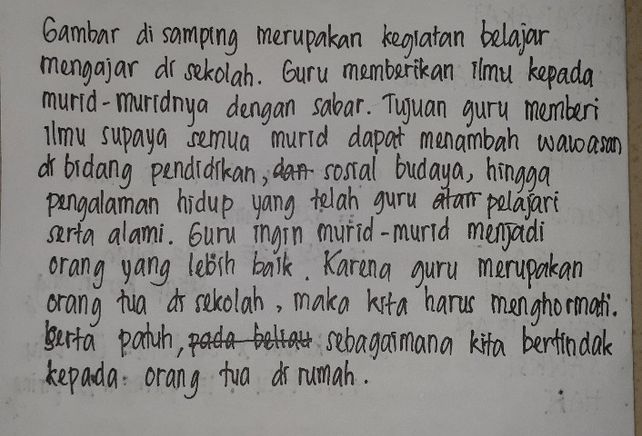 Gambar di samping merupakan kegiatan belajar
mengajar di sekolah. Guru memberikan ilmu kepada
murid-muridnya dengan sabar. Tujuan guru memberi
ilmu supaya semua murid dapat menambah wawasan
di bidang pendidikan, dan sosial budaya, hingga
pengalaman hidup yang telah guru pelajari
serta alami. Guru ingin murid-murid menjadi
orang yang lebih baik. Karena guru merupakan
orang tua di sekolah, maka kita harus menghormati.
Serta patuh, pada beliau sebagaimana kita bertindak
kepada orang tua di rumah.